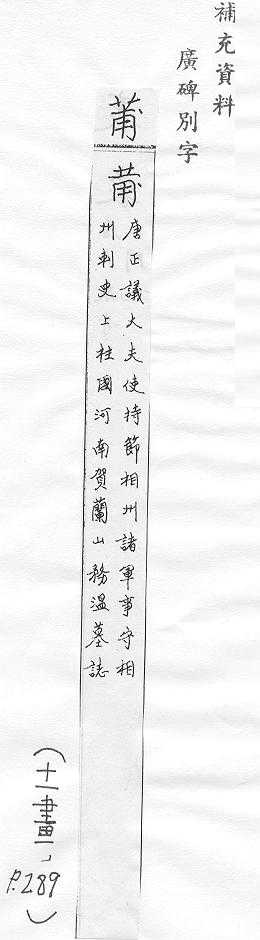 補充資料
廣碑別字
莆
莆
唐正議大夫使持節相州諸軍事守相
州刺史上柱國河南賀蘭山務溫墓誌
(十一畫,
P.289)